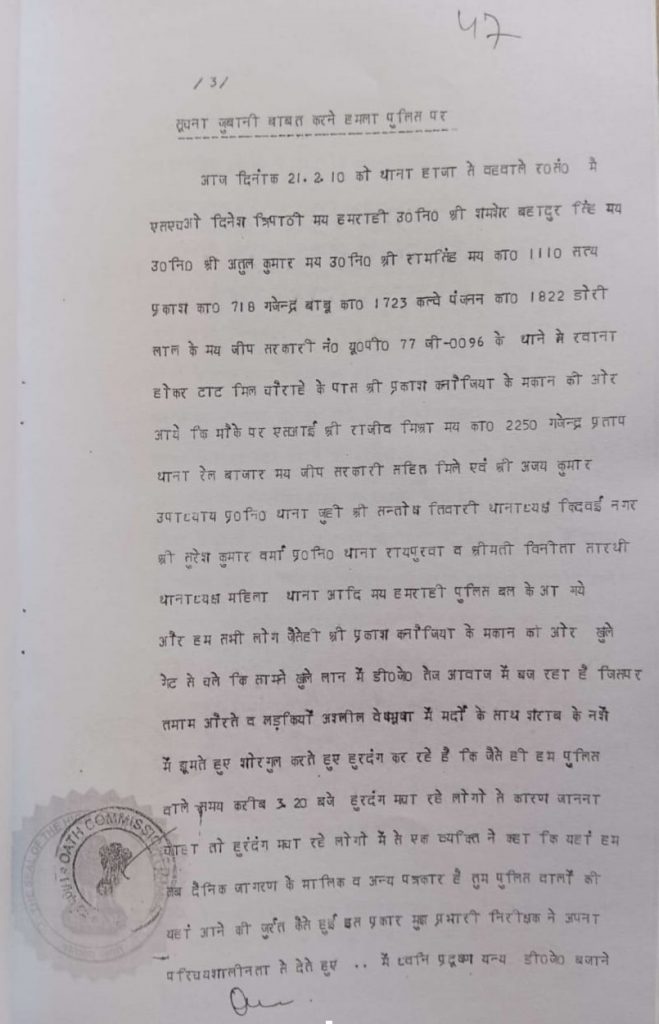 47
/ 3 /
सूचना जुबानी बाबत करने हमला पुलिस पर
आज दिनांक 21.2.10 को थाना हाजा ते वहवाले र0सं0 मै
एसएचओ दिनेश त्रिपाठी मय हमराही उ0नि0 श्री शमशेर बहादुर सिंह मय
उ0नि0 श्री अतुल कुमार मय उ0नि0 श्री रामसिंह मय का0 1110 सत्य
प्रकाश का0 718 गजेन्द्र बाबू का0 1723 कल्वे पंजनन का0 1822 डोरी
लाल के मय जीप सरकारी नं0 यू0पी0 77 जी-0096 के थाने से रवाना
होकर टाट मिल चौराहे के पास श्री प्रकाश कनौजिया के मकान की ओर
आये कि मौके पर एसआई श्री राजीव मिश्रा मय का0 2250 गजेन्द्र प्रताप
थाना रेल बाजार मय जीप सरकारी सहित मिले एवं श्री अजय कुमार
उपाध्याय प्र0नि0 थाना जुही श्री सन्तोष तिवारी थानाध्यक्ष किदवई नगर
श्री सुरेश कुमार वर्मा प्र0नि0 थाना रायपुरवा व श्रीमती विनीता सारथी
थानाध्यक्ष महिला थाना आदि मय हमराही पुलिस बल के आ गये
और हम सभी लोग जैसेही श्री प्रकाश कनौजिया के मकान की ओर खुले
गेट से चले कि सामने खुले लान में डी0जे0 तेज आवाज में बज रहा है जिसपर
तमाम औरते व लड़कियाँ अश्लील वेषभूषा में मर्दो के साथ शराब के नशे
में झूमते हुए शोरगुल करते हुए हुरदंग कर रहे है कि जैसे ही हम पुलिस
वाले समय करीब 3.20 बजे हुरदंग मचा रहे लोगो से कारण जानना
चाहा तो हुरदंग मचा रहे लोगो में से एक व्यक्ति ने कहा कि यहां हम
सब दैनिक जागरण के मालिक व अन्य पत्रकार है तुम पुलिस वालों की
यहां आने की जुर्रत कैसे हुई इस प्रकार मुझ प्रभारी निरीक्षक ने अपना
परिचयशालीनता से देते हुए .. में ध्वनि प्रदूषण यन्य डी0जे0 बजाने
OATH COMMISSI